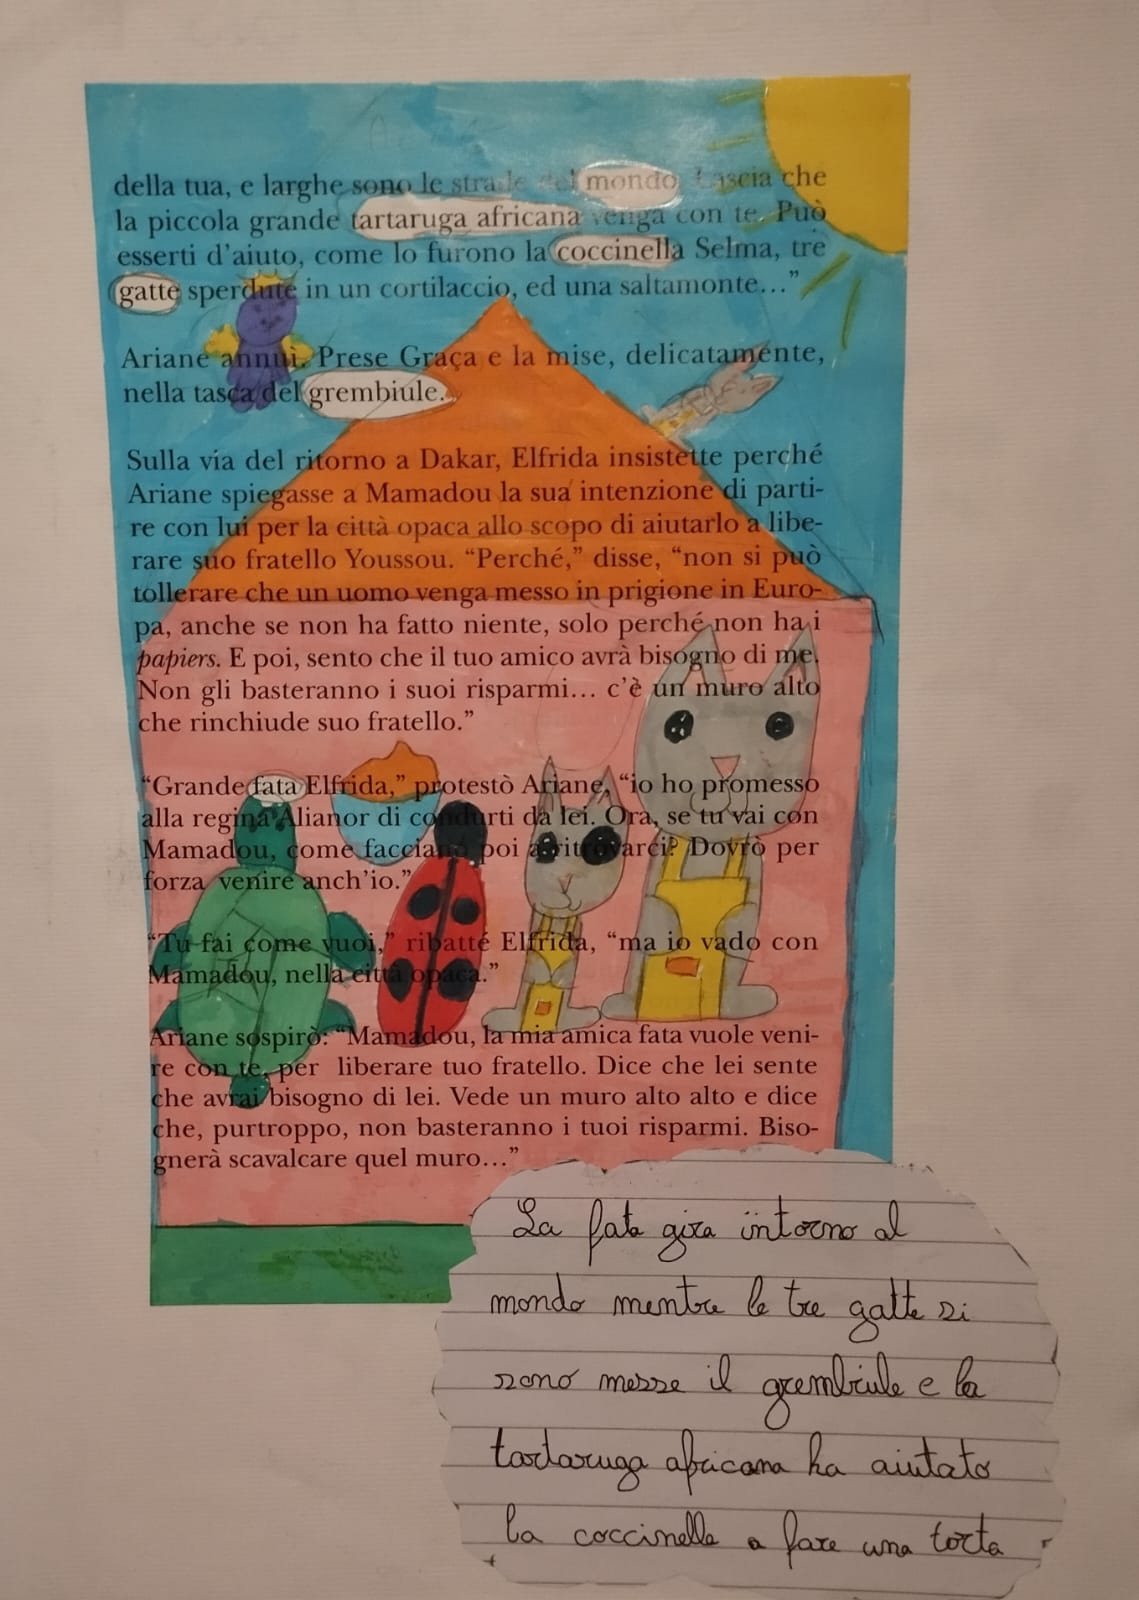 della tua, e larghe sono le strade del mondo. Lascia che
la piccola grande tartaruga africana venga con te. Può
esserti d'aiuto, come lo furono la coccinella Selma, tre
gatte sperdute in un cortilaccio, ed una saltamonte…”
Ariane annuì. Prese Graça e la mise, delicatamente,
nella tasca del grembiule.
Sulla via del ritorno a Dakar, Elfrida insistette perché
Ariane spiegasse a Mamadou la sua intenzione di parti-
re con lui per la città opaca allo scopo di aiutarlo a libe-
rare suo fratello Youssou. “Perché,” disse, “non si può
tollerare che un uomo venga messo in prigione in Euro-
pa, anche se non ha fatto niente, solo perché non ha i
papiers. E poi, sento che il tuo amico avrà bisogno di me.
Non gli basteranno i suoi risparmi… c'è un muro alto
che rinchiude suo fratello.”
“Grande fata Elfrida,” protestò Ariane, “io ho promesso
alla regina Alianor di condurti da lei. Ora, se tu vai con
Mamadou, come facciamo poi a ritrovarci? Dovrò per
forza venire anch'io.”
“Tu fai come vuoi,” ribatté Elfrida, “ma io vado con
Mamadou, nella città opaca.”
Ariane sospirò: “Mamadou, la mia amica fata vuole veni-
re con te, per liberare tuo fratello. Dice che lei sente
che avrai bisogno di lei. Vede un muro alto alto e dice
che, purtroppo, non basteranno i tuoi risparmi. Biso-
gnerà scavalcare quel muro…”
La fata gira intorno al
mondo mentre le tre gatte si
sono messe il grembiule e la
tartaruga africana ha aiutato
la coccinella a fare una torta